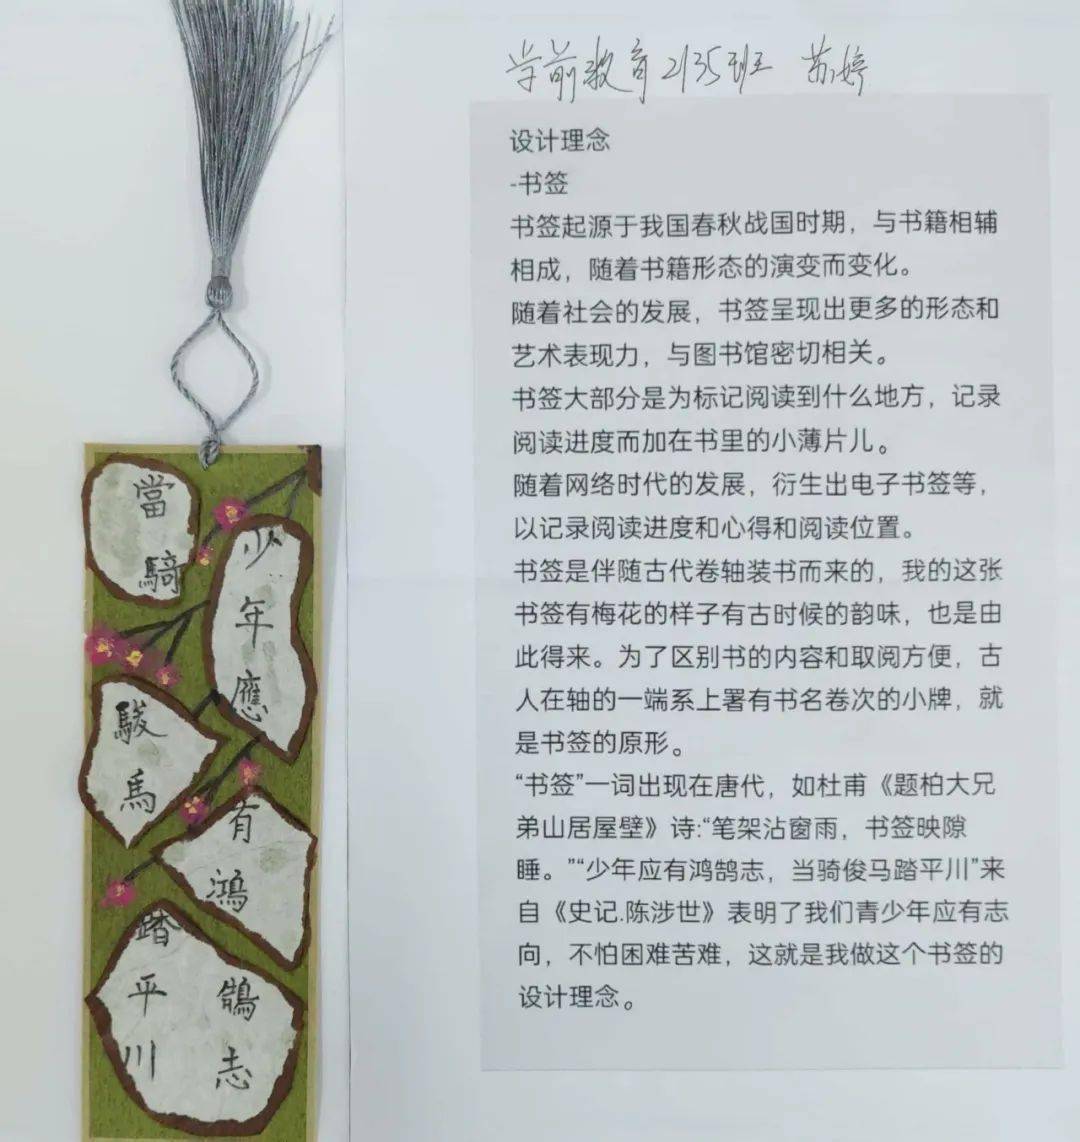 少
年
應
有
鴻
鵠
志
當
騎
駿
馬
踏
平
川
学前教育2135班 苏婷
设计理念
-书签
书签起源于我国春秋战国时期，与书籍相辅
相成，随着书籍形态的演变而变化。
随着社会的发展，书签呈现出更多的形态和
艺术表现力，与图书馆密切相关。
书签大部分是为标记阅读到什么地方，记录
阅读进度而加在书里的小薄片儿。
随着网络时代的发展，衍生出电子书签等，
以记录阅读进度和心得和阅读位置。
书签是伴随古代卷轴装书而来的，我的这张
书签有梅花的样子有古时候的韵味，也是由
此得来。为了区别书的内容和取阅方便，古
人在轴的一端系上署有书名卷次的小牌，就
是书签的原形。
“书签”一词出现在唐代，如杜甫《题柏大兄
弟山居屋壁》诗:“笔架沾窗雨，书签映隙
睡。”“少年应有鸿鹄志，当骑俊马踏平川”来
自《史记.陈涉世》表明了我们青少年应有志
向，不怕困难苦难，这就是我做这个书签的
设计理念。